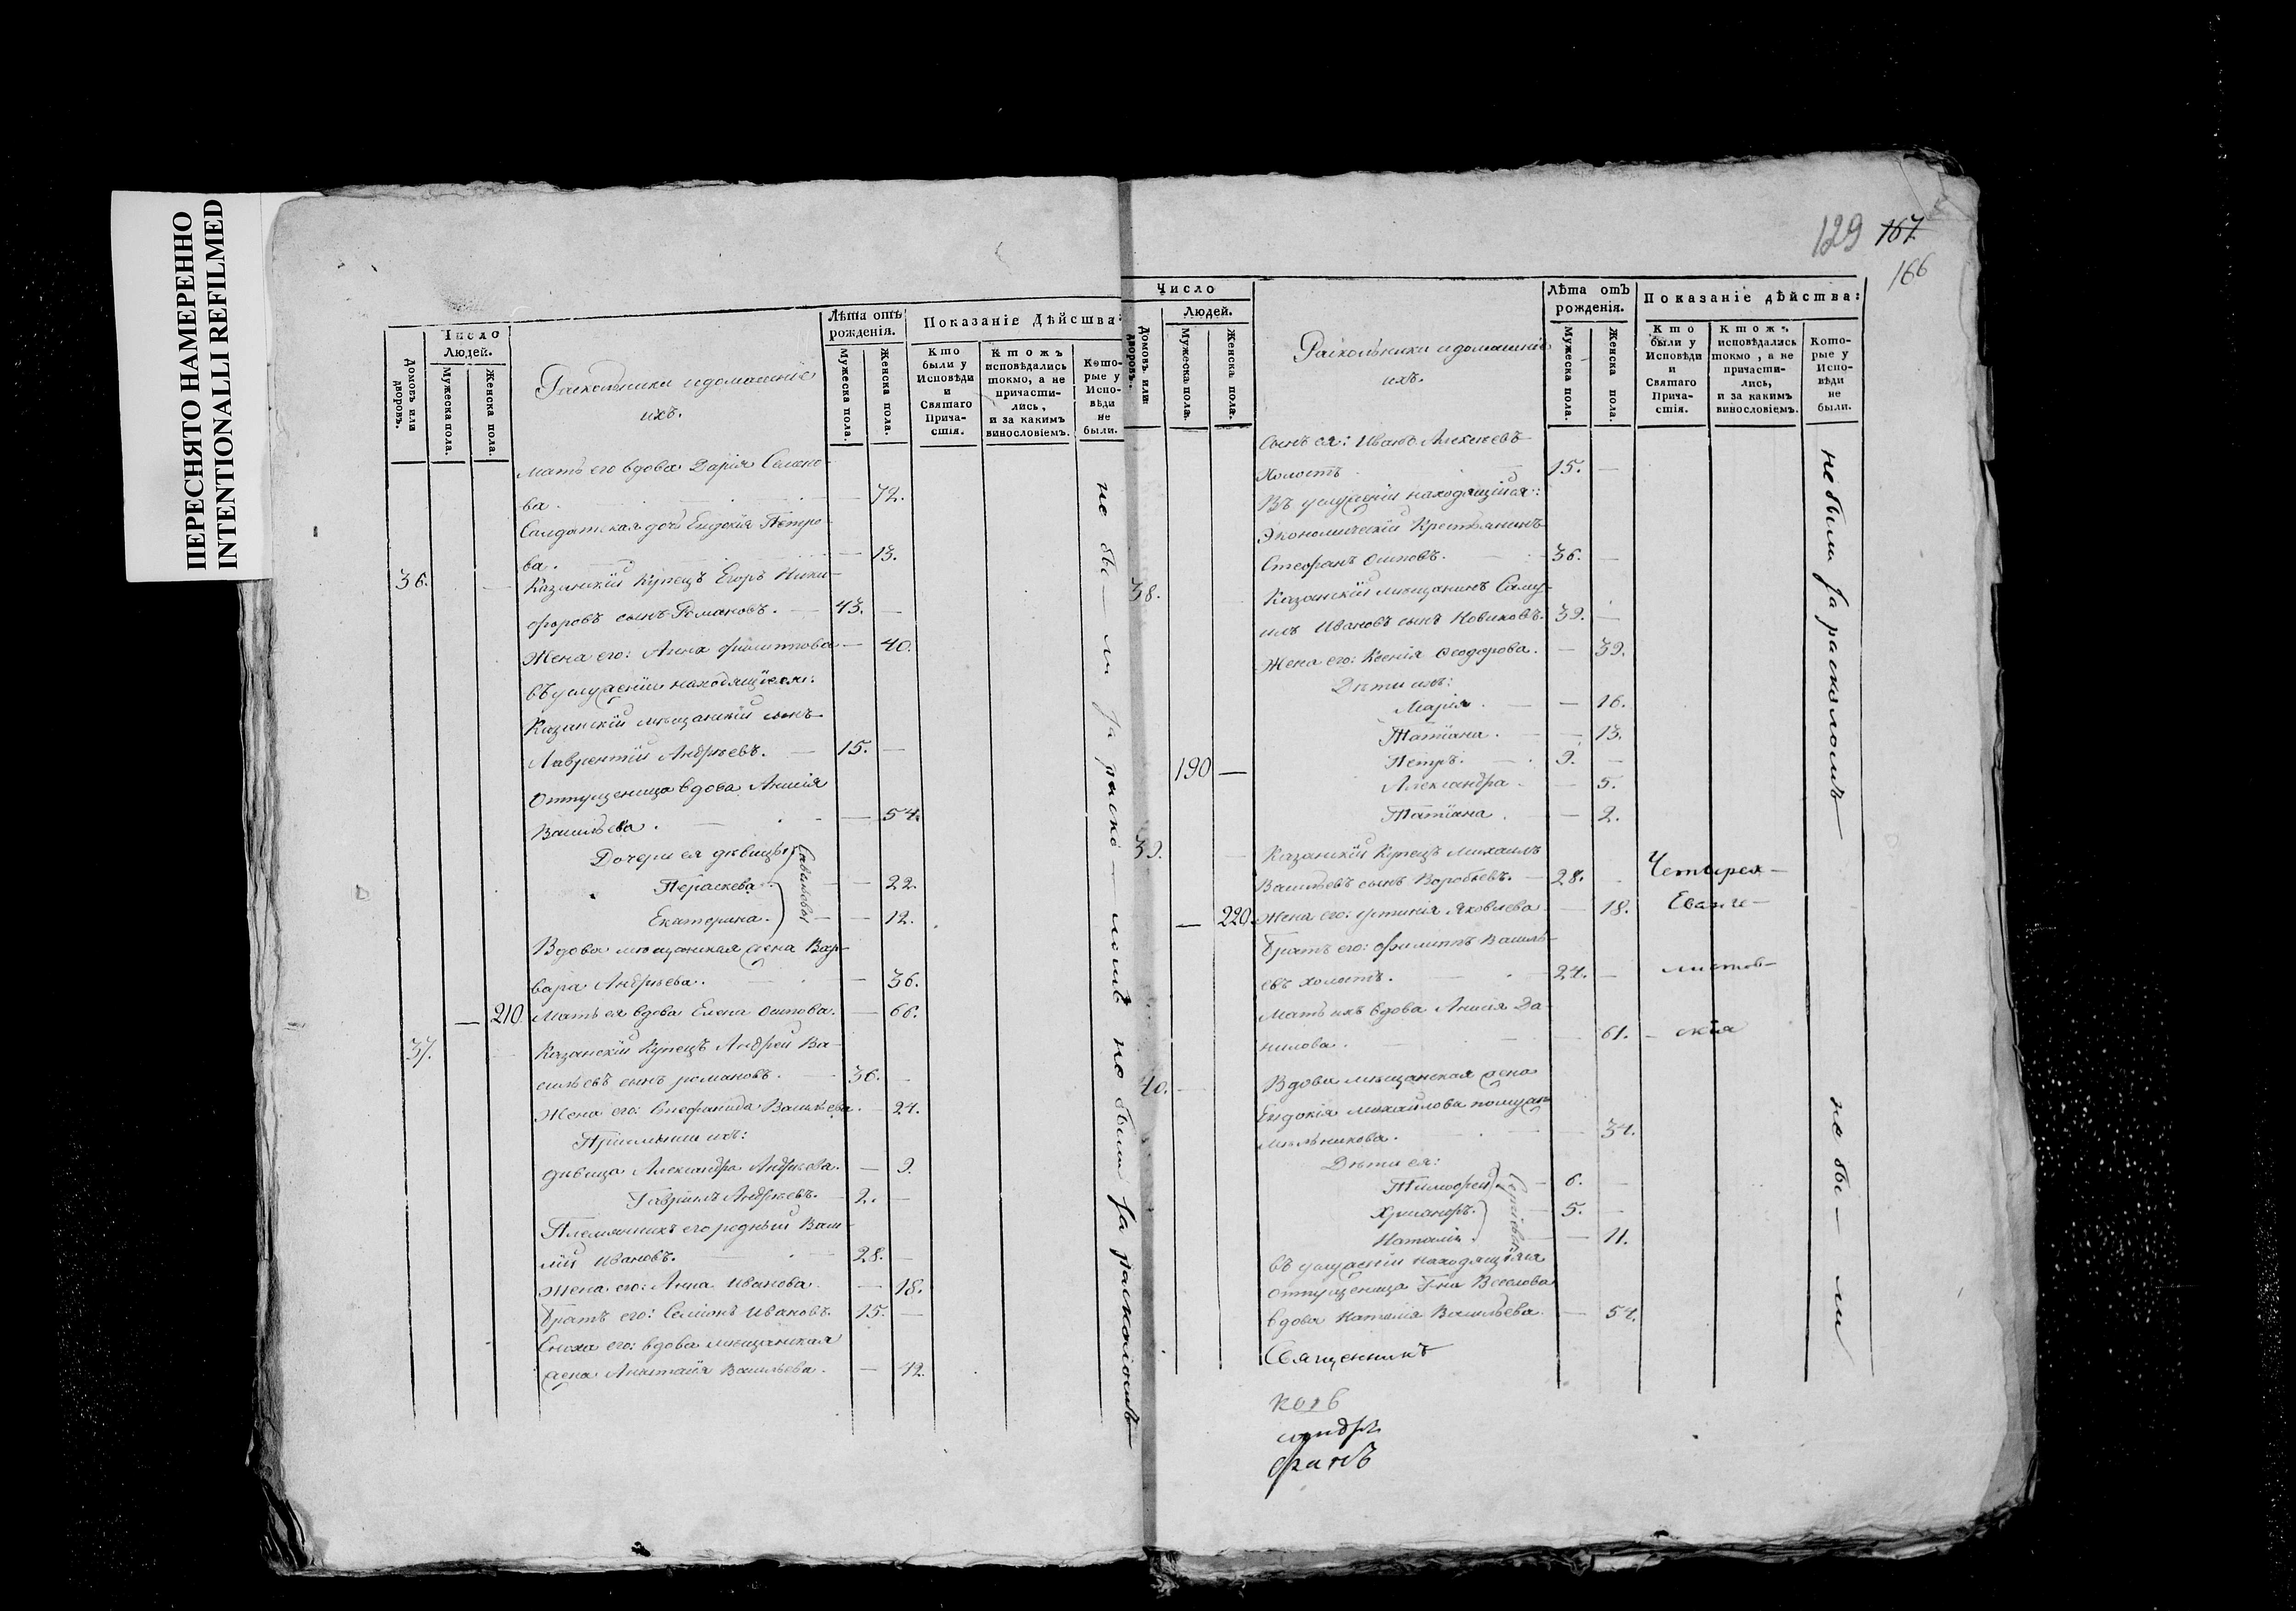 ПЕРЕСНЯТО НАМЕРЕННО
INTENTIONALLI REFILMED
Число
Людей.
Домовъ или дворовъ.
Мужеска пола.
Женска пола.
Раскольники и домашніе
ихъ.
Лѣта отъ
рожденія.
Мужеска пола.
Женска пола.
Показаніе Дѣйства:
Кто
были у
Исповѣди
и
Святаго
Прича-
стія.
Ктожъ
исповѣдались
токмо, а не
причасти-
лись,
и за какимъ
винословіемъ.
Кото-
рые у
Испо-
вѣди
не
были.
мать его вдова Дарія Семено-
ва. — 72.
Солдатская дочь Евдокія Петро-
ва. — 13.
36. Казанскій Купецъ Егоръ Ники-
форовъ сынъ Романовъ. — 43. —
Жена его: Анна Филиппова — 40.
въ услуженіи находящіеся:
Казанскій мѣщанскій сынъ
Лаврентій Андреевъ. — 15. —
Отпущеница вдова Анисія
Васильева. — 54.
Дочери ея дѣвицы
Параскева. — 22.
Екатерина. — 12.
Савельевы
Вдова мѣщанская жена Вар-
вара Андреева. — 36.
— 210 Мать ея вдова Елена Осипова. — 66.
37. Казанскій Купецъ Андрей Ва-
сильевъ сынъ романовъ. — 36. —
Жена его: Стефанида Васильева. — 24.
Пріемыши ихъ:
дѣвица Александра Андреева. — 9.
Гавріилъ Андреевъ. — 2. —
Племянникъ его родный Васи-
лій Ивановъ. 28. —
Жена его: Анна Иванова — 18.
Братъ его: Семіонъ Ивановъ. 15. —
Сноха его: вдова мѣщанская
жена Анастасія Васильева. — 42.
не бы — ли за раско — ломъ
не были за расколомъ
129 167.
166
Число
Людей.
Домовъ или дворовъ.
Мужеска пола.
Женска пола.
Раскольники и домашніе
ихъ.
Лѣта отъ
рожденія.
Мужеска пола.
Женска пола.
Показаніе дѣйства:
Кто
были у
Исповѣди
и
Святаго
Прича-
стія.
Ктожъ
исповѣдались
токмо, а не
причасти-
лись,
и за какимъ
винословіемъ.
Кото-
рые у
Испо-
вѣди
не
были.
Сынъ ея: Иванъ Алексеевъ
Холостъ 15. —
Въ услуженіи находящійся:
Экономическій Крестьянинъ
Стефанъ Осиповъ. 36. —
38. Казанскій мѣщанинъ Саму-
илъ Ивановъ сынъ Новиковъ. 39. —
Жена его: Ксенія Феодорова. — 39.
Дѣти ихъ:
Марія. — 16.
Татіана. — 13.
190 — Петръ. — 9. —
Александра. — 5.
Татіана. — 2.
39. Казанскій Купецъ Михаилъ
Васильевъ сынъ Воробьевъ. — 28. Четырех-
— 220. Жена его: Устинія Яковлева. — 18. Еванге-
Братъ его: Филиппъ Василь-
евъ холостъ. 24. — листов-
Мать ихъ вдова Анисія Да-
нилова. — 61. — скія
40. Вдова мѣщанская жена
Евдокія Михайлова
мельникова. — 34.
Дѣти ея:
Тимофей. — 6. —
Хрисанфъ. — 5. —
Наталія. — 11.
Сергіевы
въ услуженіи находящаяся
отпущеница Г-на Веселова
вдова Наталія Васильева. — 54.
Священникъ
не были за расколомъ
не бы — ли